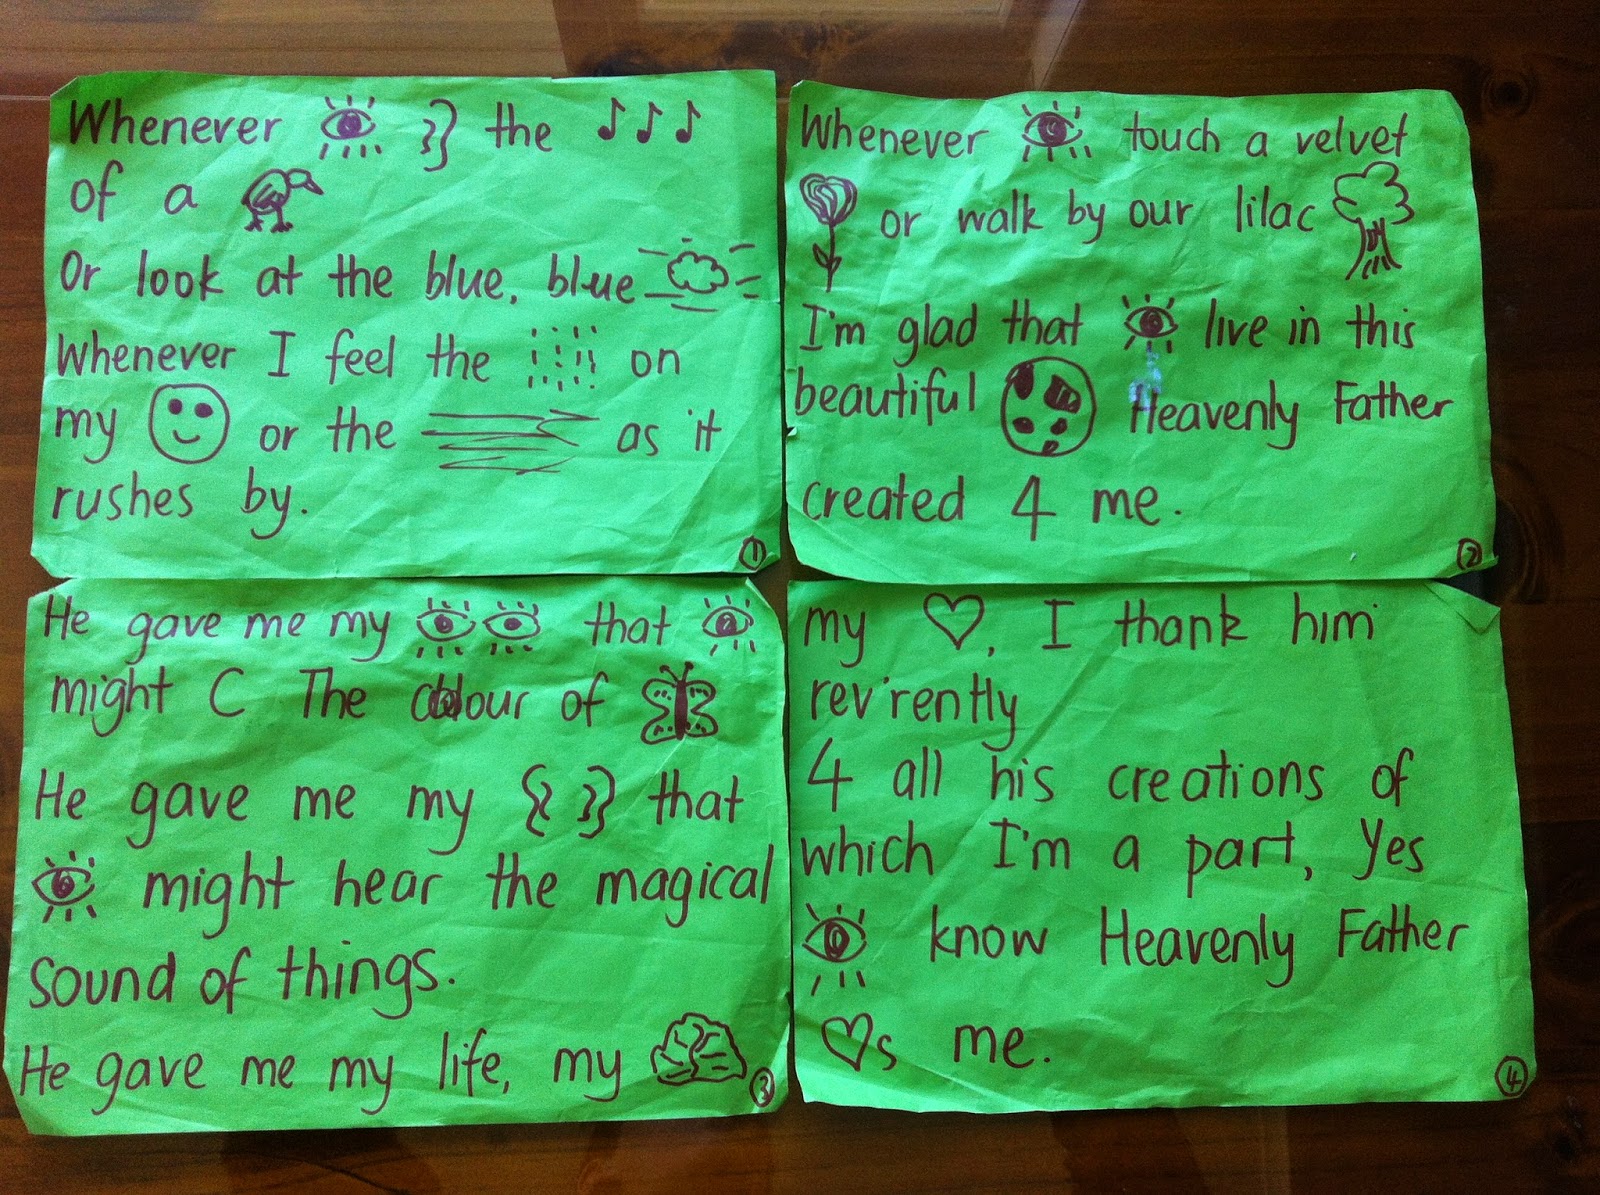 Whenever the
of a
Or look at the blue, blue
Whenever I feel the on
my or the as it
rushes by.
1
Whenever touch a velvet
or walk by our lilac
I'm glad that live in this
beautiful Heavenly Father
created 4 me.
2
He gave me my that
might C The colour of
He gave me my that
might hear the magical
sound of things.
He gave me my life, my
3
my , I thank him
rev'rently
4 all his creations of
which I'm a part, Yes
know Heavenly Father
s me.
4